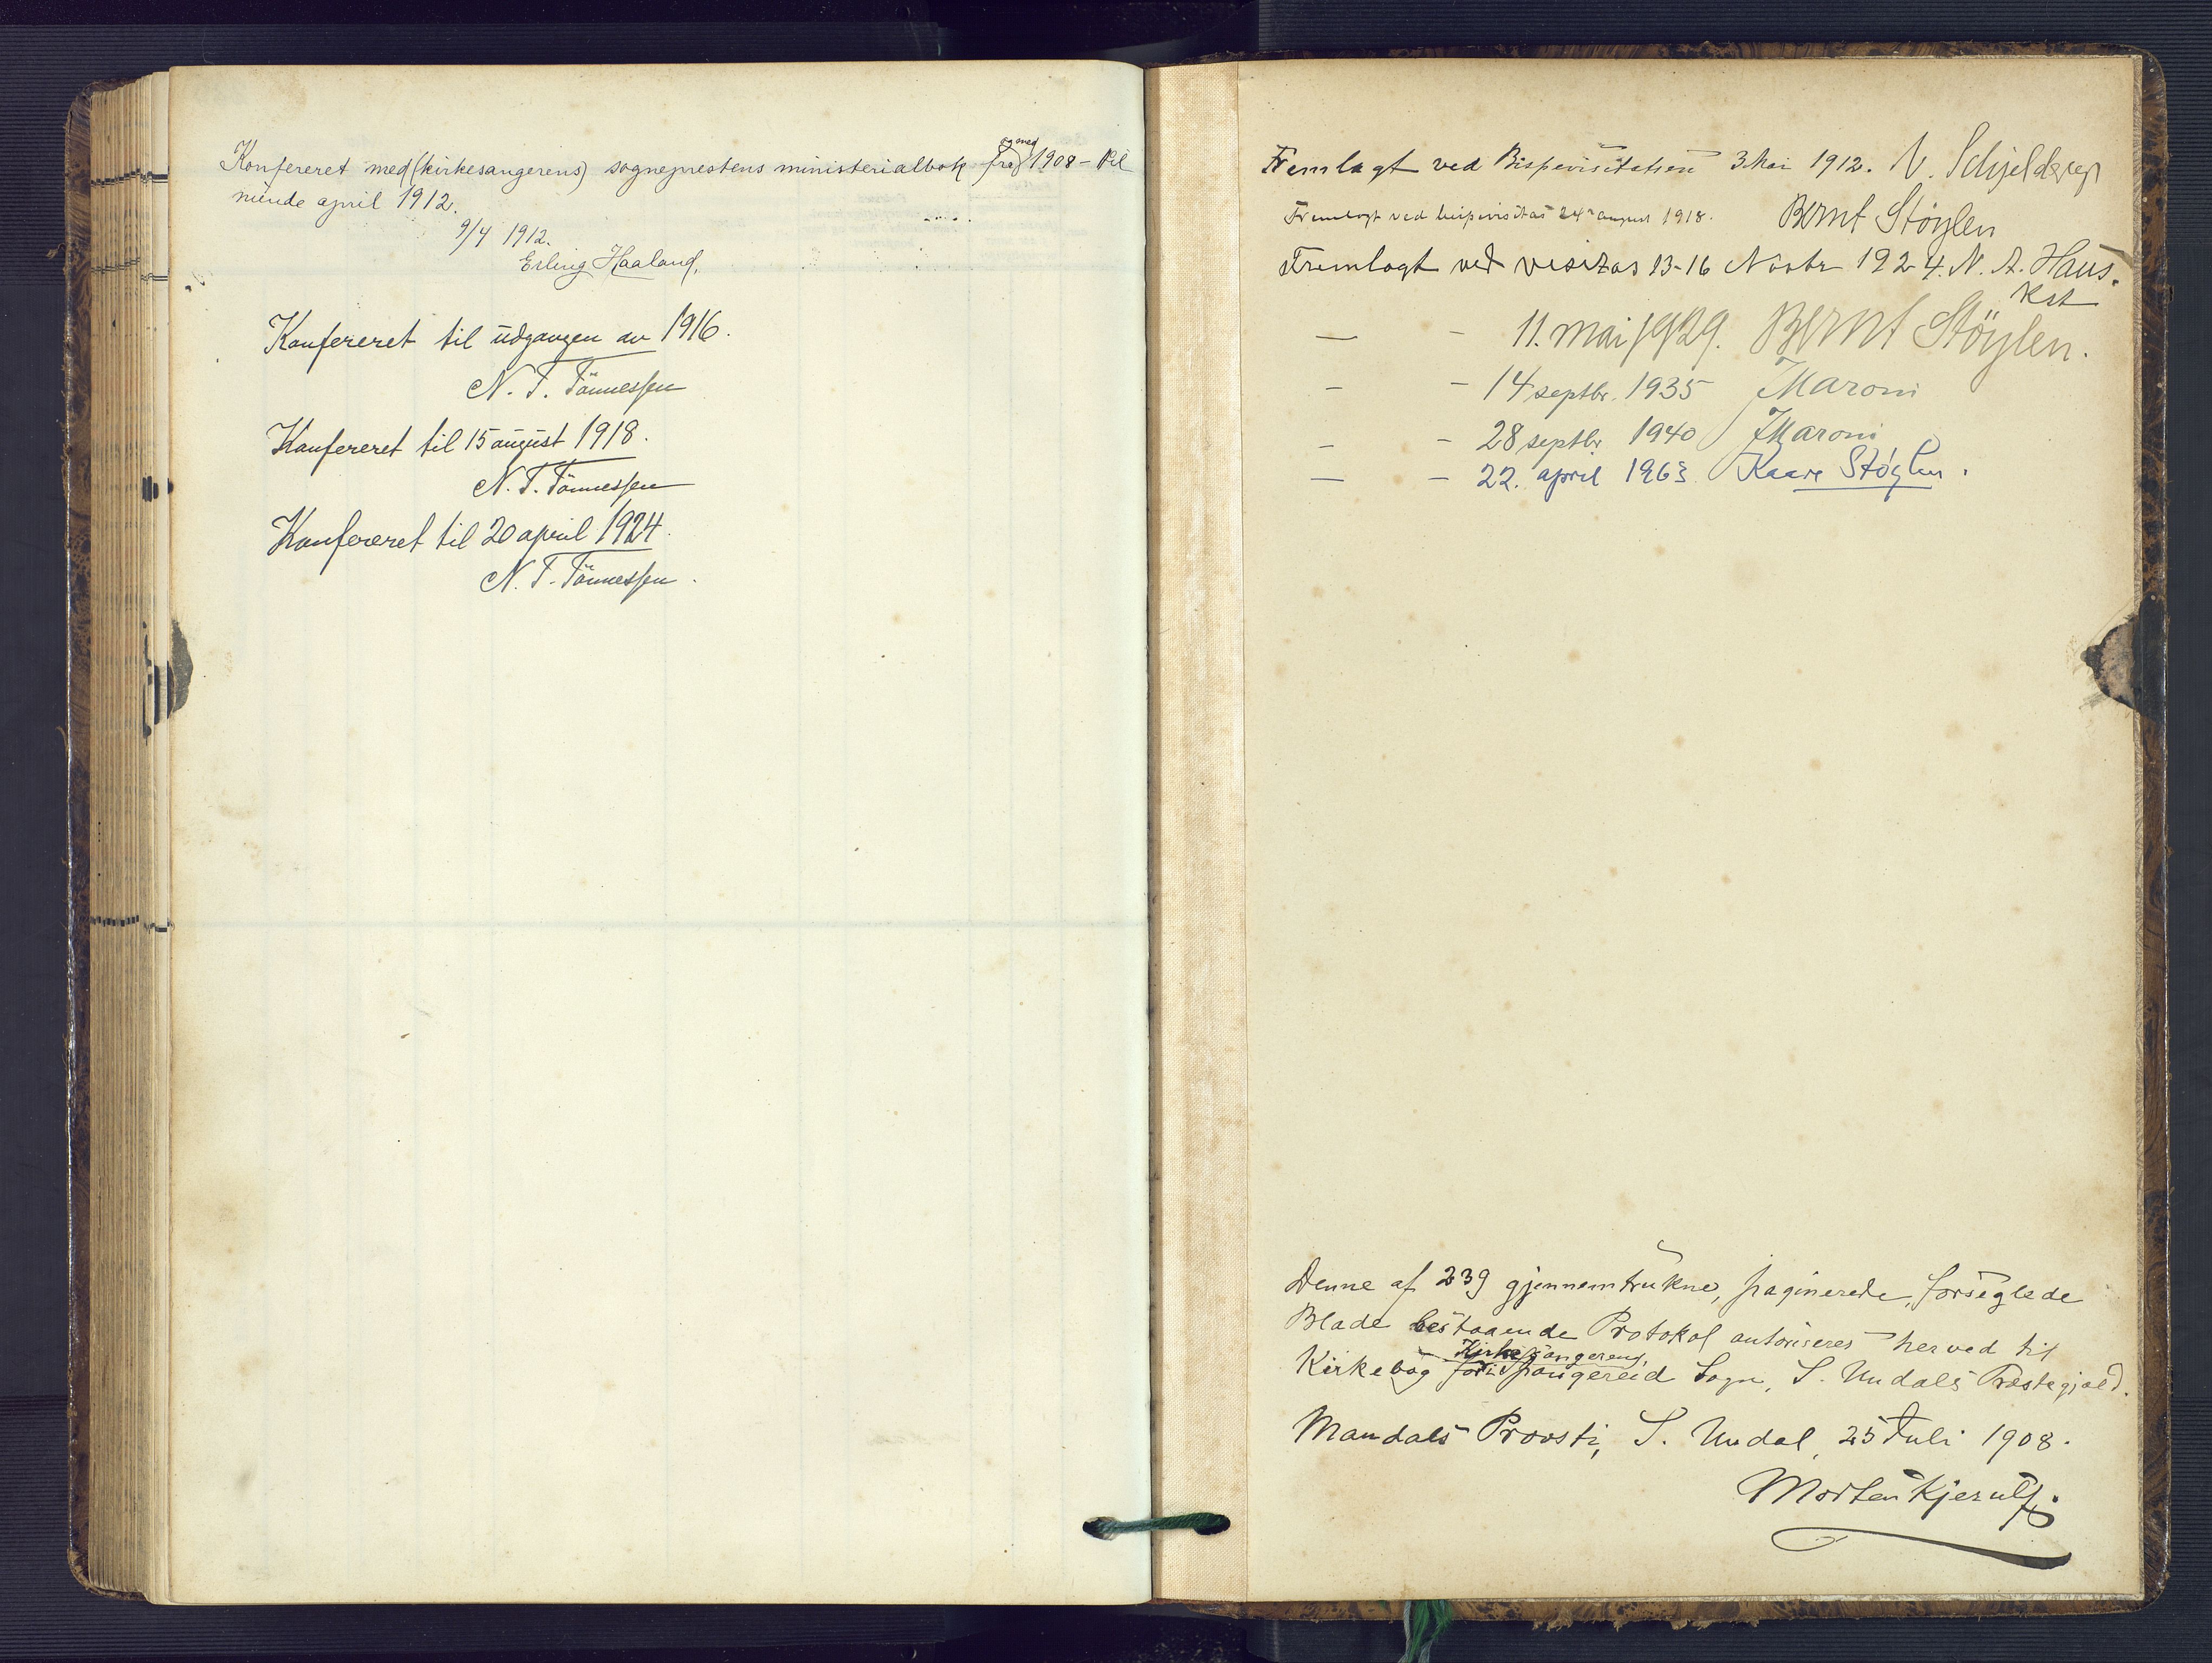 Konfereret med (kirkesangerens) sogneprestens ministerialbok fra og med 1908 – til
niende april 1912.
9/4 1912.
Erling Haaland.
Konfereret til udgangen av 1916.
N. T. Tönnessen
Konfereret til 15 august 1918.
N. T. Tönnessen
Konfereret til 20 april 1924.
N. T. Tönnessen.
Fremlagt ved Bispevisitatsen 3 Mai 1912. N. Schjelderup
Fremlagt ved bispevisitas 24de august 1918. Bernt Stöylen
Fremlagt ved visitas 13-16 Novbr 1924. N. A. Haus.
Kst
— – 11. mai 1929. Bernt Stöylen.
– – 14 septbr. 1935 JMaroni
– – 28 septbr 1940 JMaroni
— – 22. april 1963 Kaare Støylen.
Denne af 239 gjennemtrukne, paginerede, forseglede
Blade bestaaende Protokol autoriseres herved til
Kirkesangerens
Kirkebog for Spangereid Sogn, S. Undals Præstegjæld.
Mandals Provsti, S. Undal, 25 Juli 1908.
Morten Kjerulf.